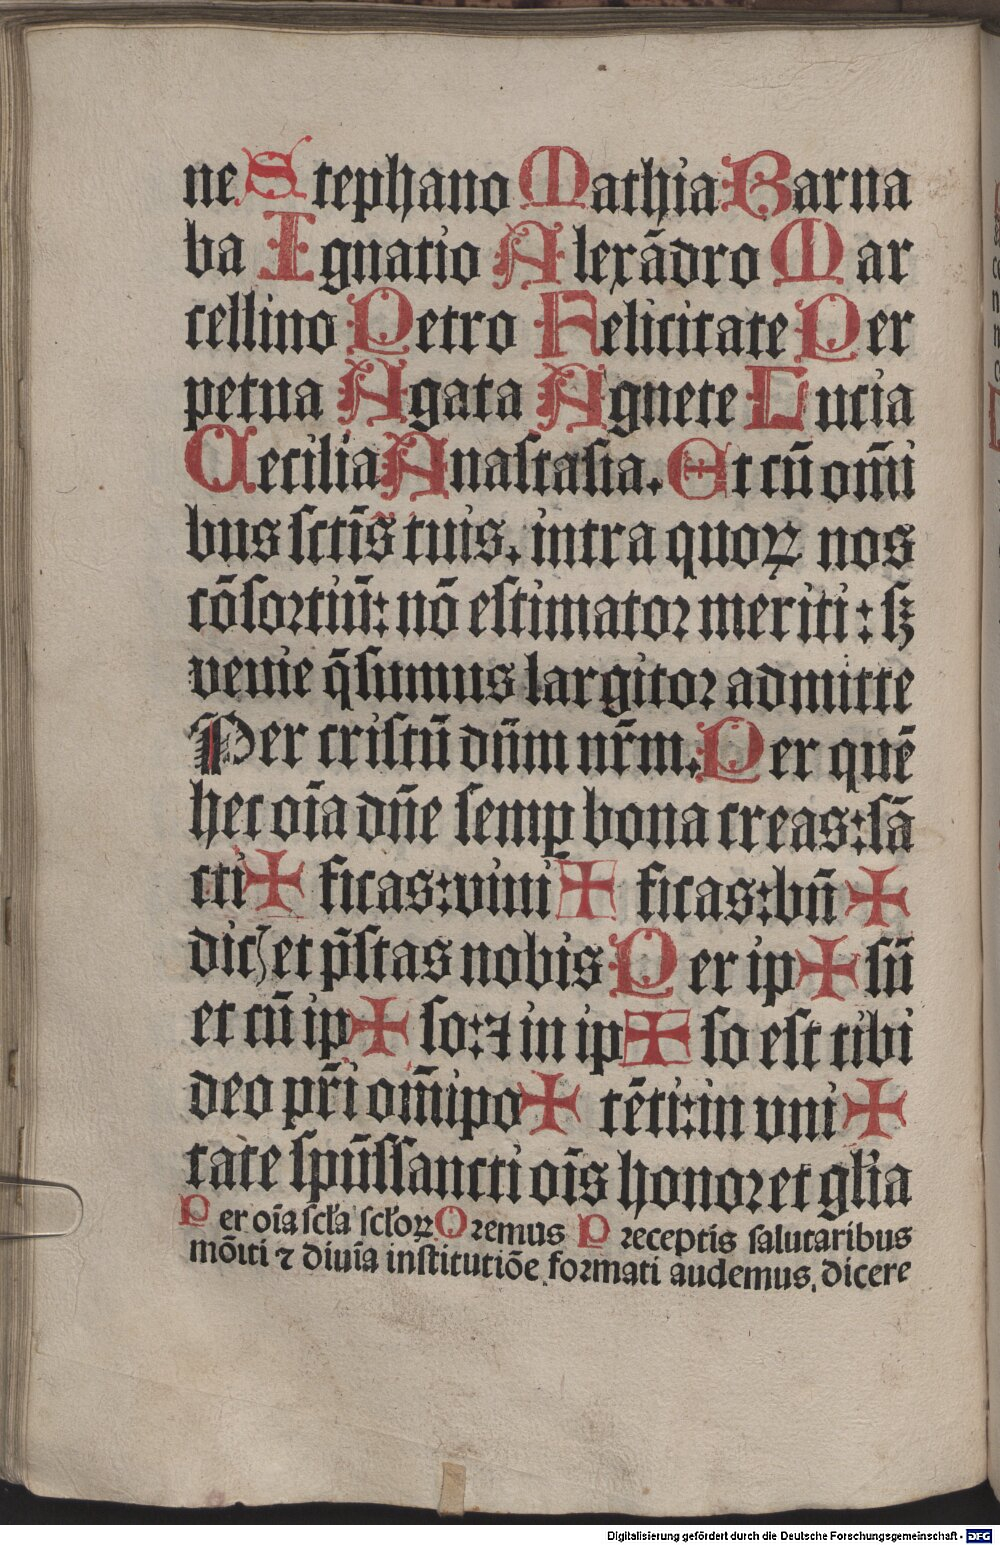 ne Stephano Mathia Barna
ba Ignatio Alexādro Mar
cellino Petro Felicitate Per
petua Agata Agnete Lucia
Cecilia Anaſtaſia. Et cū om̄i
bus ſctīs tuis. intra quoꝝ nos
cōſoꝛtiū: nō eſtimatoꝛ meriti: ſꝫ
venie q̄ſumus largitoꝛ admitte
Per criſtū dn̄m nr̄m. Per quē
hec oīa dn̄e ſemꝑ bona creas: ſā
cti ✠ ficas: viui ✠ ficas: bn̄ ✠
dicꝫ et p̄ſtas nobis Per ip ✠ ſū
et cū ip ✠ ſo: ⁊ in ip ✠ ſo eſt tibi
deo pr̄i om̄ipo ✠ tēti: in vni ✠
tate ſpūſſancti oīs honoꝛ et gl̄ia
Per oīa ſcl̄a ſcl̄oꝝ Oꝛemus Pꝛeceptis ſalutaribus
mōiti ⁊ diuīa inſtitutiōe foꝛmati audemus. dicere
Digitalisierung gefördert durch die Deutsche Forschungsgemeinschaft - DFG